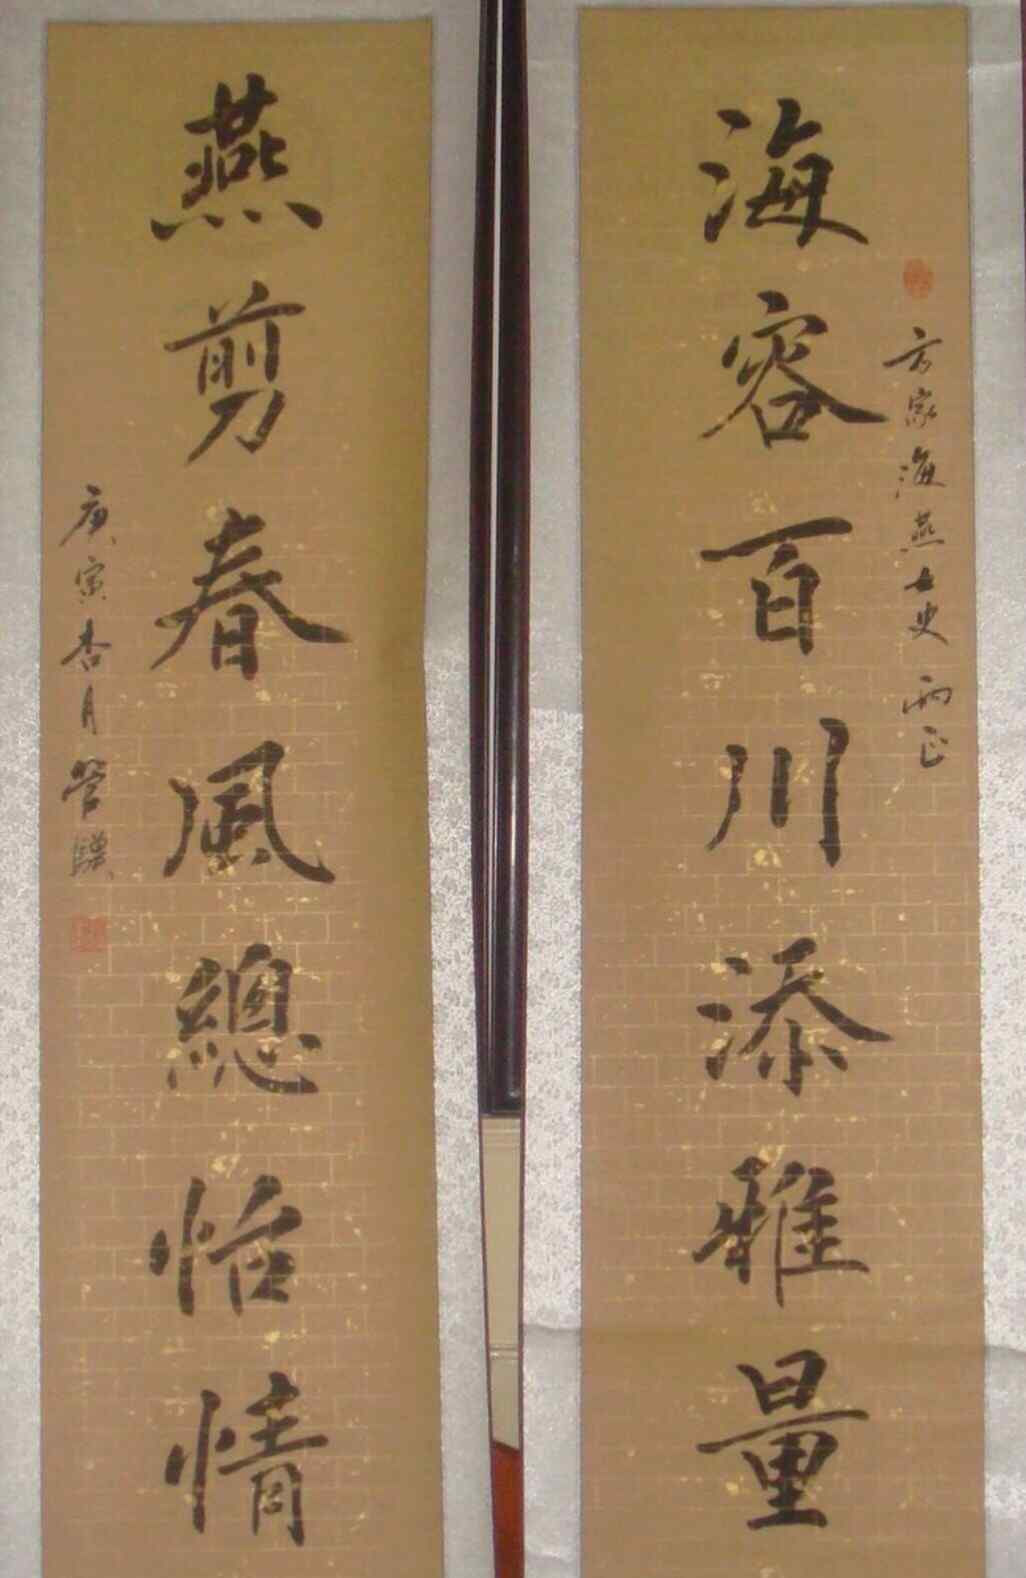 海容百川添雅量
方家海燕女史两正
燕剪春風總怡情
庚寅杏月管驥